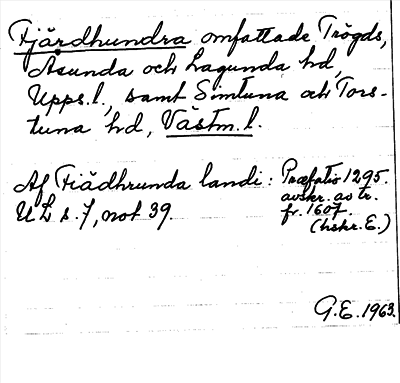 Fjärdhundra omfattade Trögds,
Asunda och Lagunda hd,
Upps.l., samt Simtuna och Tors-
tuna hd, Västm.l.
Af Fiädhrunda landi: Præfatio 1295.
avskr. av tr.
U L s. 7, not 39.
fr. 1607.
(hskr. E.)
G.E. 1963.